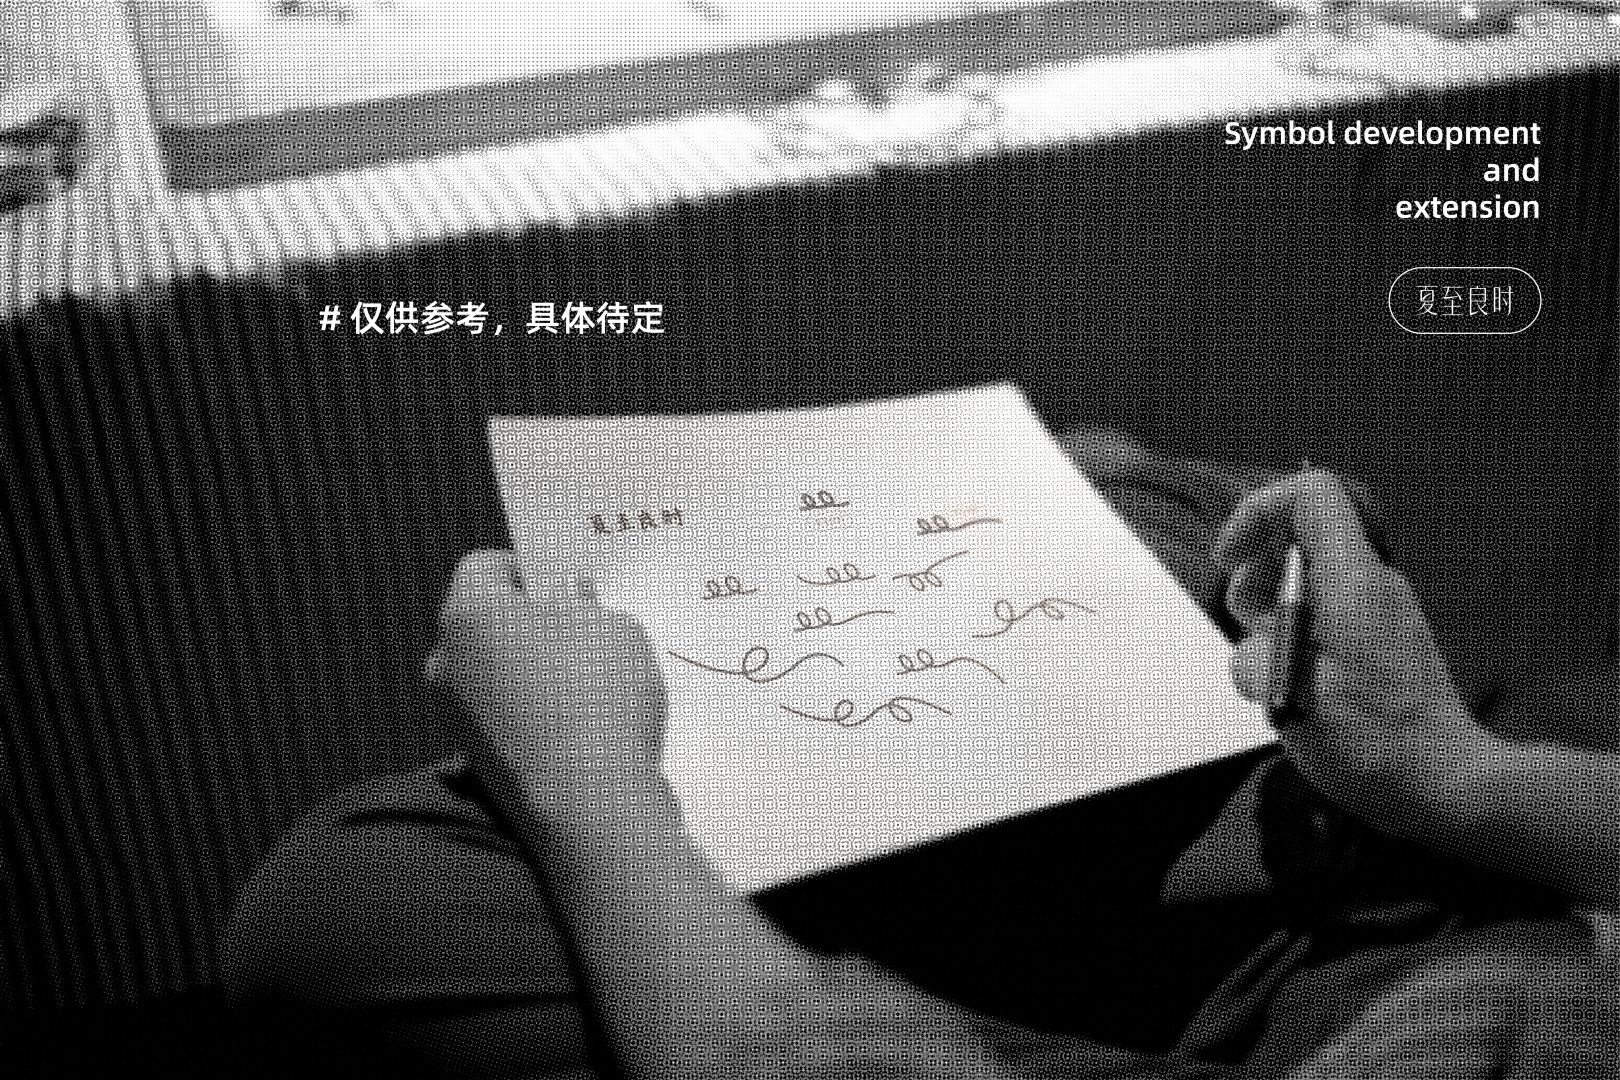 Symbol development
and
extension
夏至良时
# 仅供参考，具体待定
夏至良时